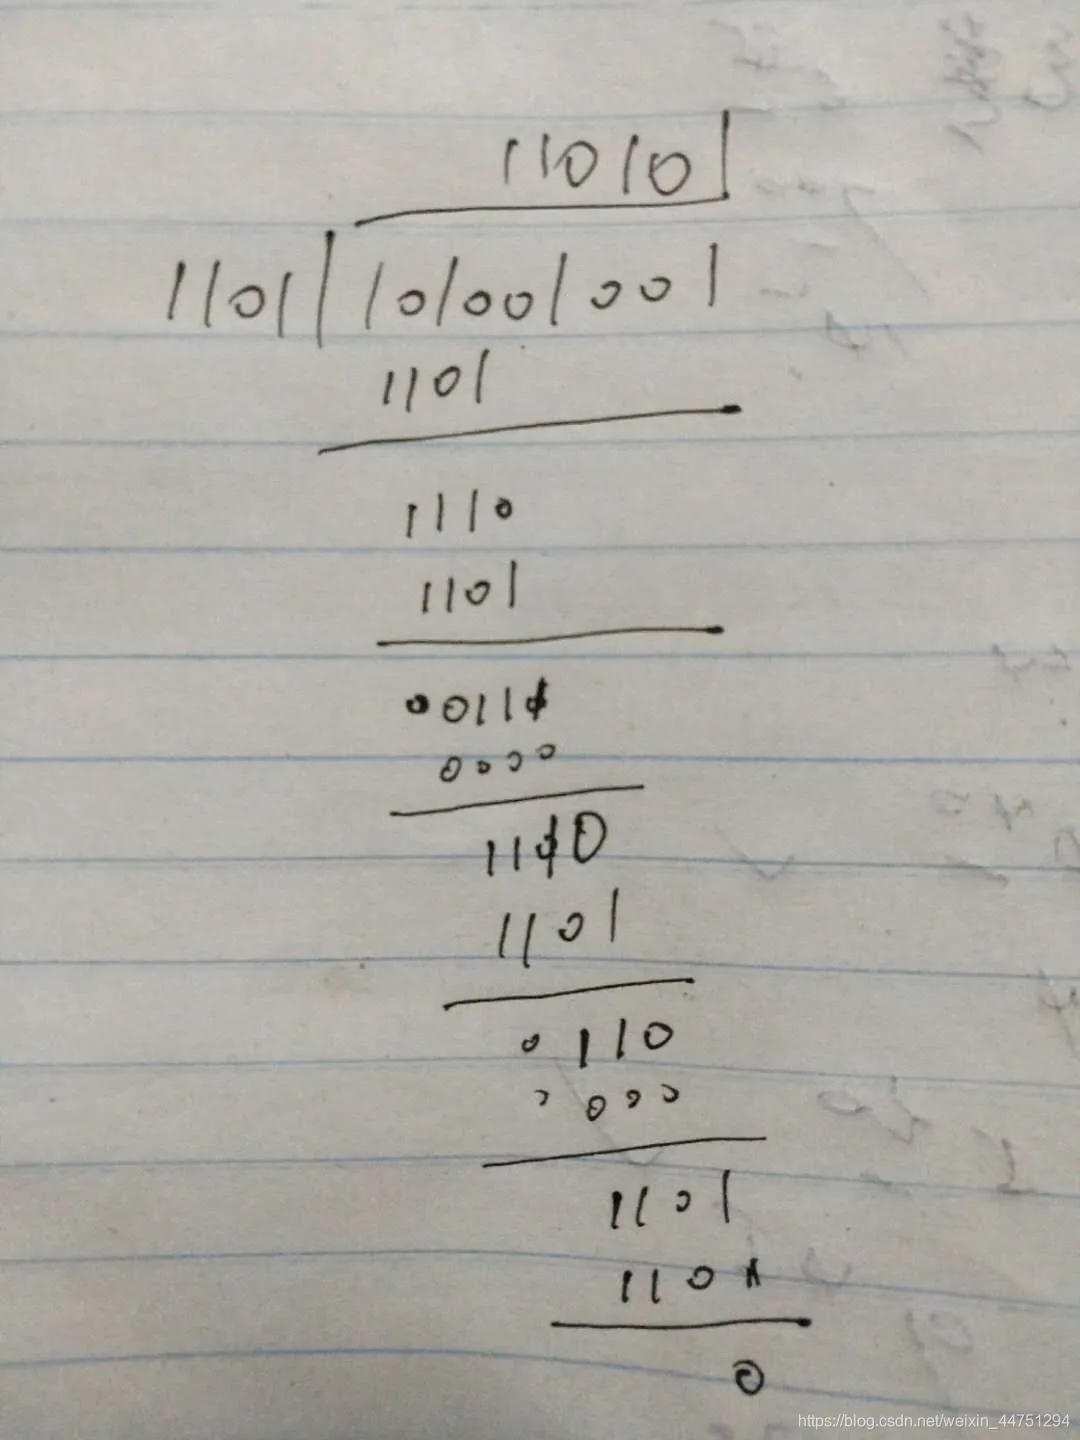 110101
1101 101001001
1101
1110
1101
00110
0000
1110
1101
0110
0000
1101
1101
0
https://blog.csdn.net/weixin_44751294